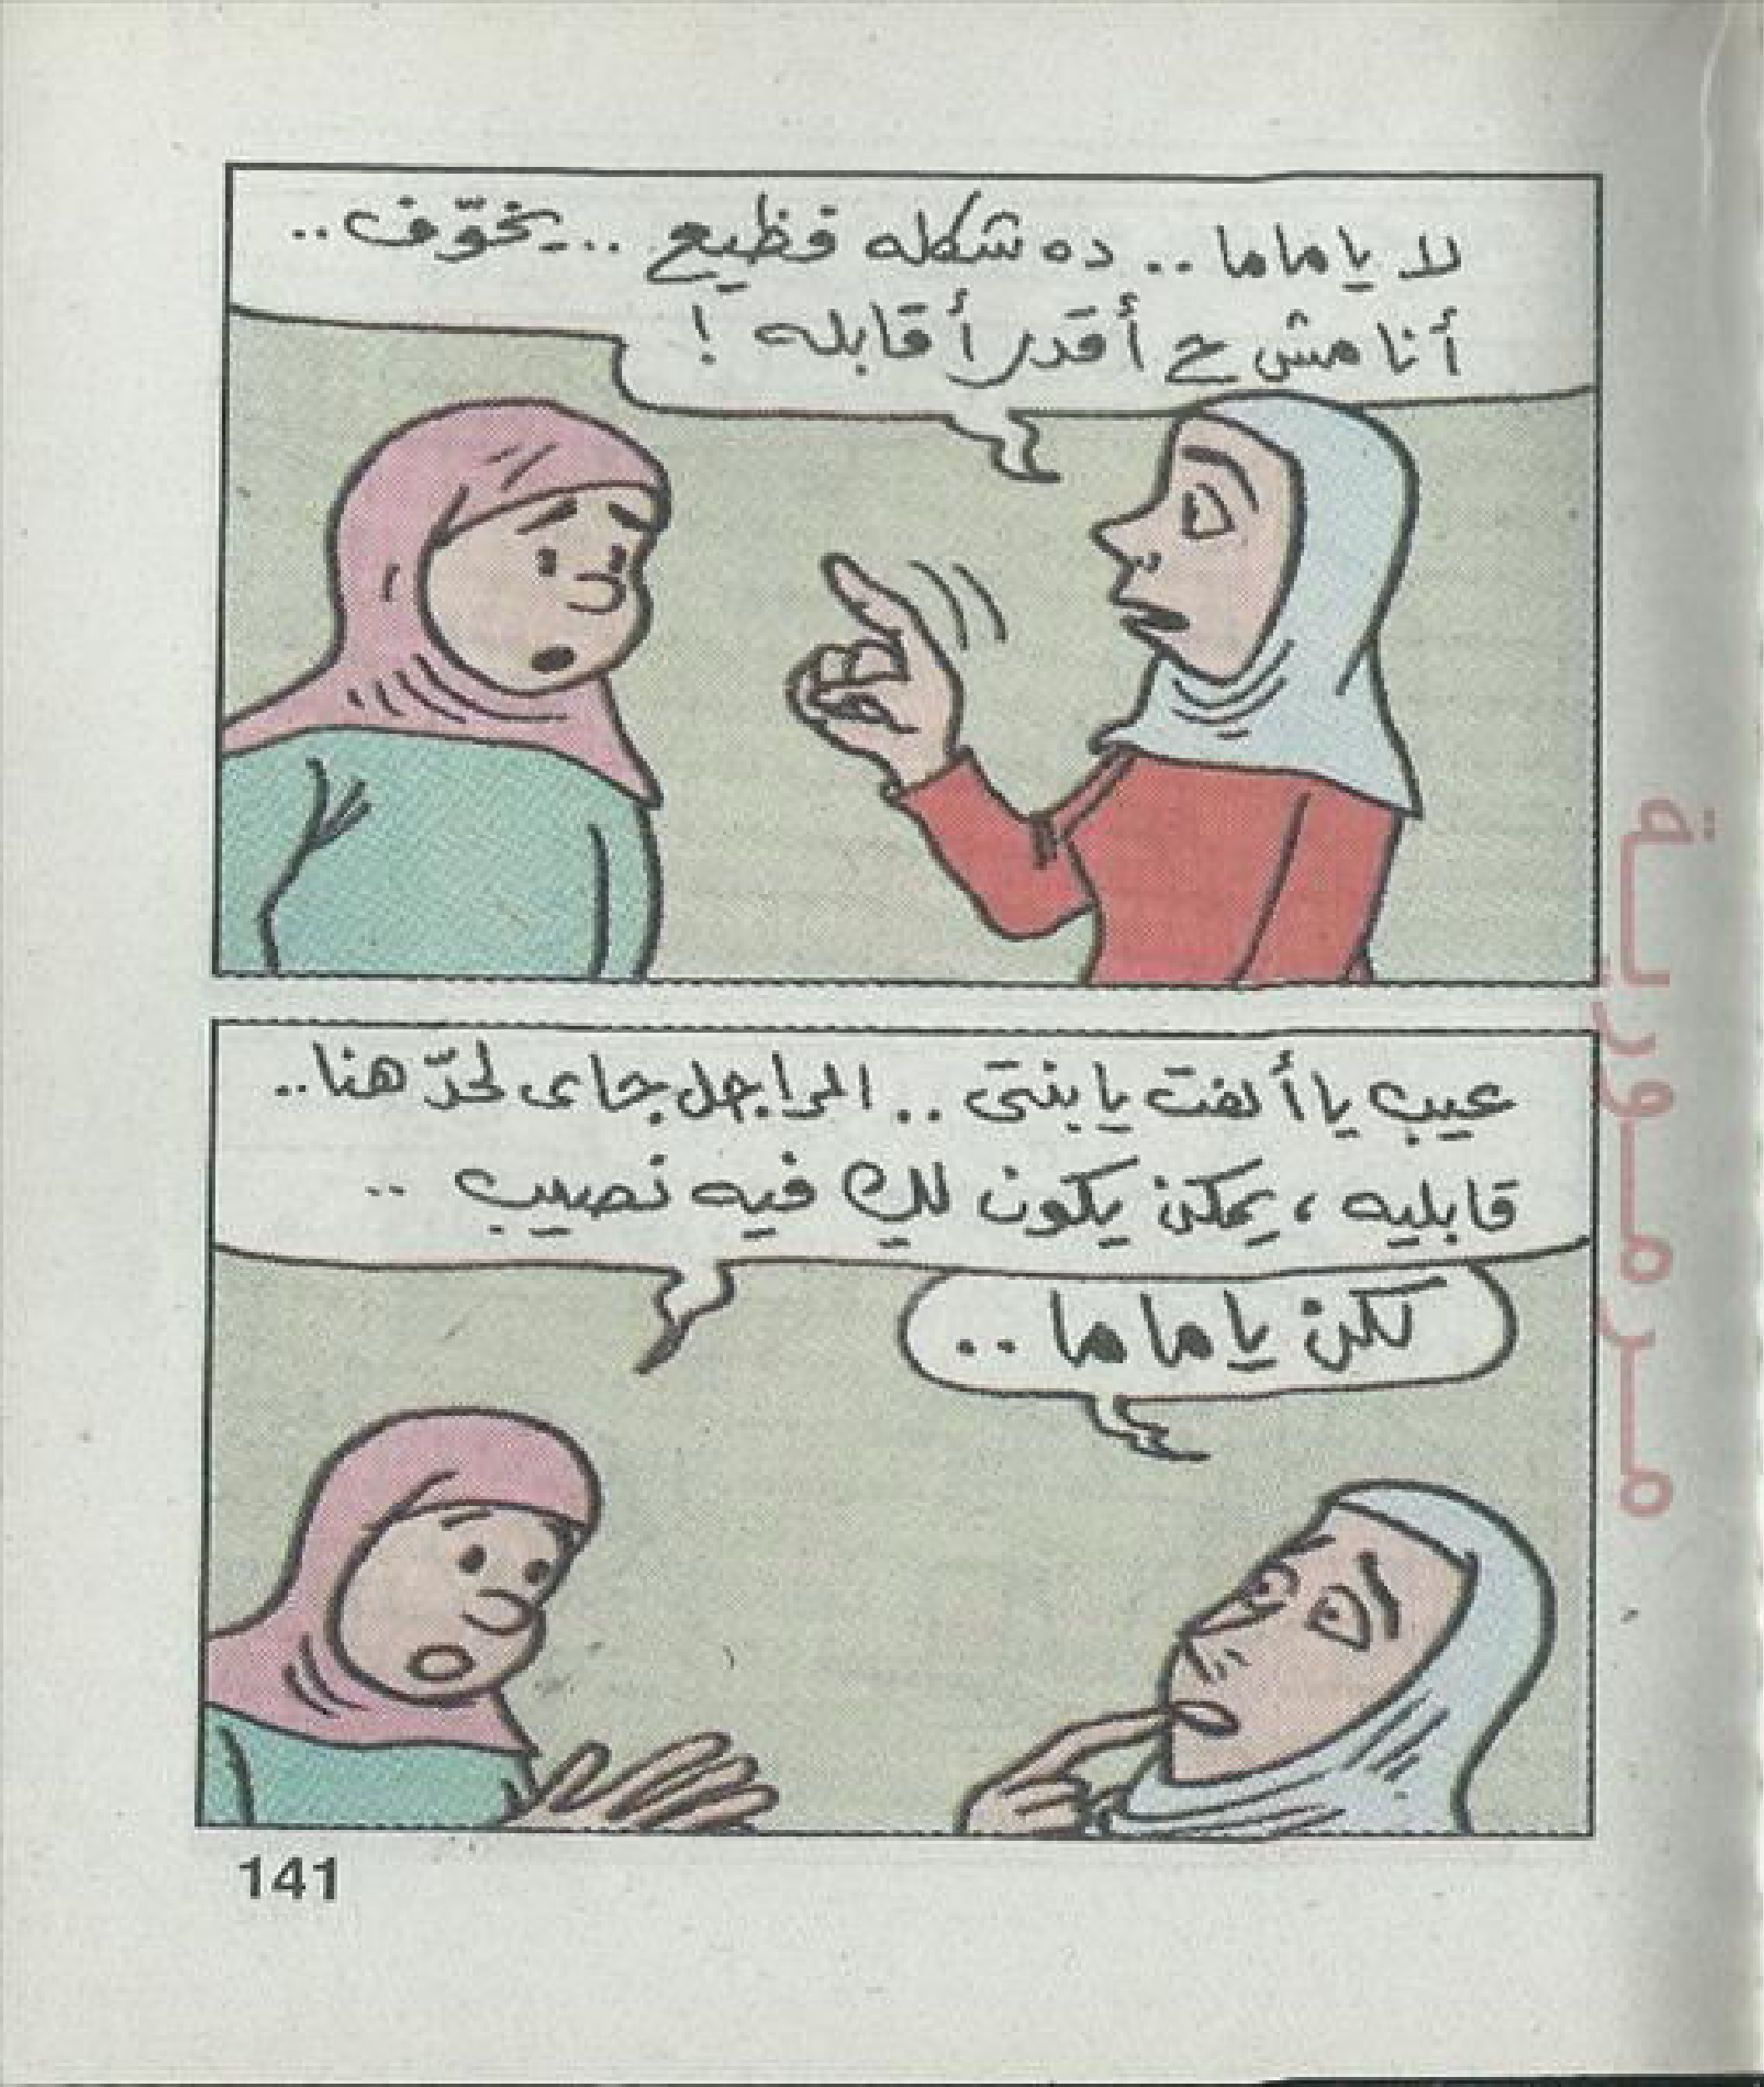 لا يا ماما .. ده شكله فظيع .. يخوّف ..
أنا مش ح أقدر أقابله !
عيب يا ألفت يا بنتى .. الراجل جاى لحدّ هنا ..
قابليه ، يمكن يكون لك فيه نصيب ..
لكن يا ماما ..
141
مرمورية